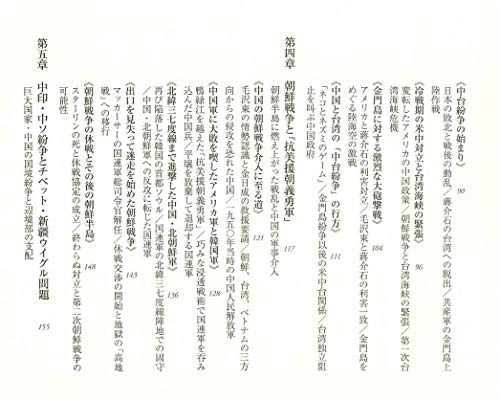 《中台紛争の始まり》 90
日本の敗北と戦後の動乱／蔣介石の台湾への脱出／共産軍の金門島上
陸作戦
《冷戦期の米中対立と台湾海峡の緊張》 96
変転したアメリカの中国政策／朝鮮戦争と台湾海峡の緊張／第一次台
湾海峡危機
《金門島に対する激烈な大砲撃戦》 104
アメリカと蔣介石の利害対立／毛沢東と蔣介石の利害一致／金門島を
めぐる陸海空の激戦
《中国と台湾の「中台紛争」の行方》 111
「ネコとネズミのゲーム」／金門島紛争以後の米中台関係／台湾独立阻
止を叫ぶ中国政府
第四章 朝鮮戦争と「抗美援朝義勇軍」 117
朝鮮半島に燃え上がった戦乱と中国の軍事介入
《中国の朝鮮戦争介入に至る道》 121
毛沢東の情勢認識と金日成の救援要請／朝鮮、台湾、ベトナムの三方
向からの侵攻を恐れた中国／一九五〇年当時の中国人民解放軍
《中国軍に大敗を喫したアメリカ軍と韓国軍》 128
鴨緑江を越えた「抗美援朝義勇軍」／巧みな浸透戦術で国連軍を吞み
込んだ中国兵／平壌を放棄して退却する国連軍
《北緯三七度線まで進撃した中国・北朝鮮軍》 136
再び陥落した韓国の首都ソウル／国連軍の北緯三七度線陣地での固守
／中国・北朝鮮軍への反攻に転じた国連軍
《出口を見失って迷走を始めた朝鮮戦争》 143
マッカーサーの国連軍総司令官解任／休戦交渉の開始と地獄の「高地
戦」への移行
《朝鮮戦争の休戦とその後の朝鮮半島》 148
スターリンの死と休戦協定の成立／終わらぬ対立と第二次朝鮮戦争の
可能性
第五章 中印・中ソ紛争とチベット・新疆ウイグル問題 155
巨大国家・中国の国境紛争と辺境部の支配